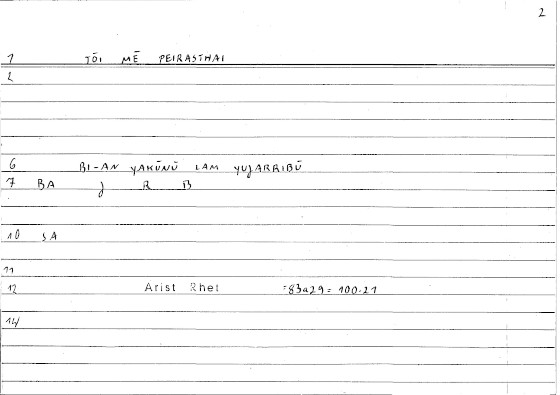 2
1 TŌI MĒ PEIRASTHAI
2
6 BI-AN YAKŪNŪ LAM YUJARRIBŪ
7 BA J R B
10 SA
11
12 Arist Rhet =83a29= 100.21
14